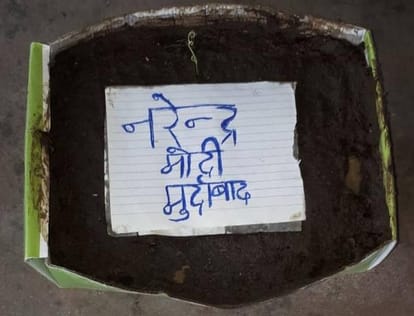 नरेन्द्र
मोदी
मुर्दाबाद